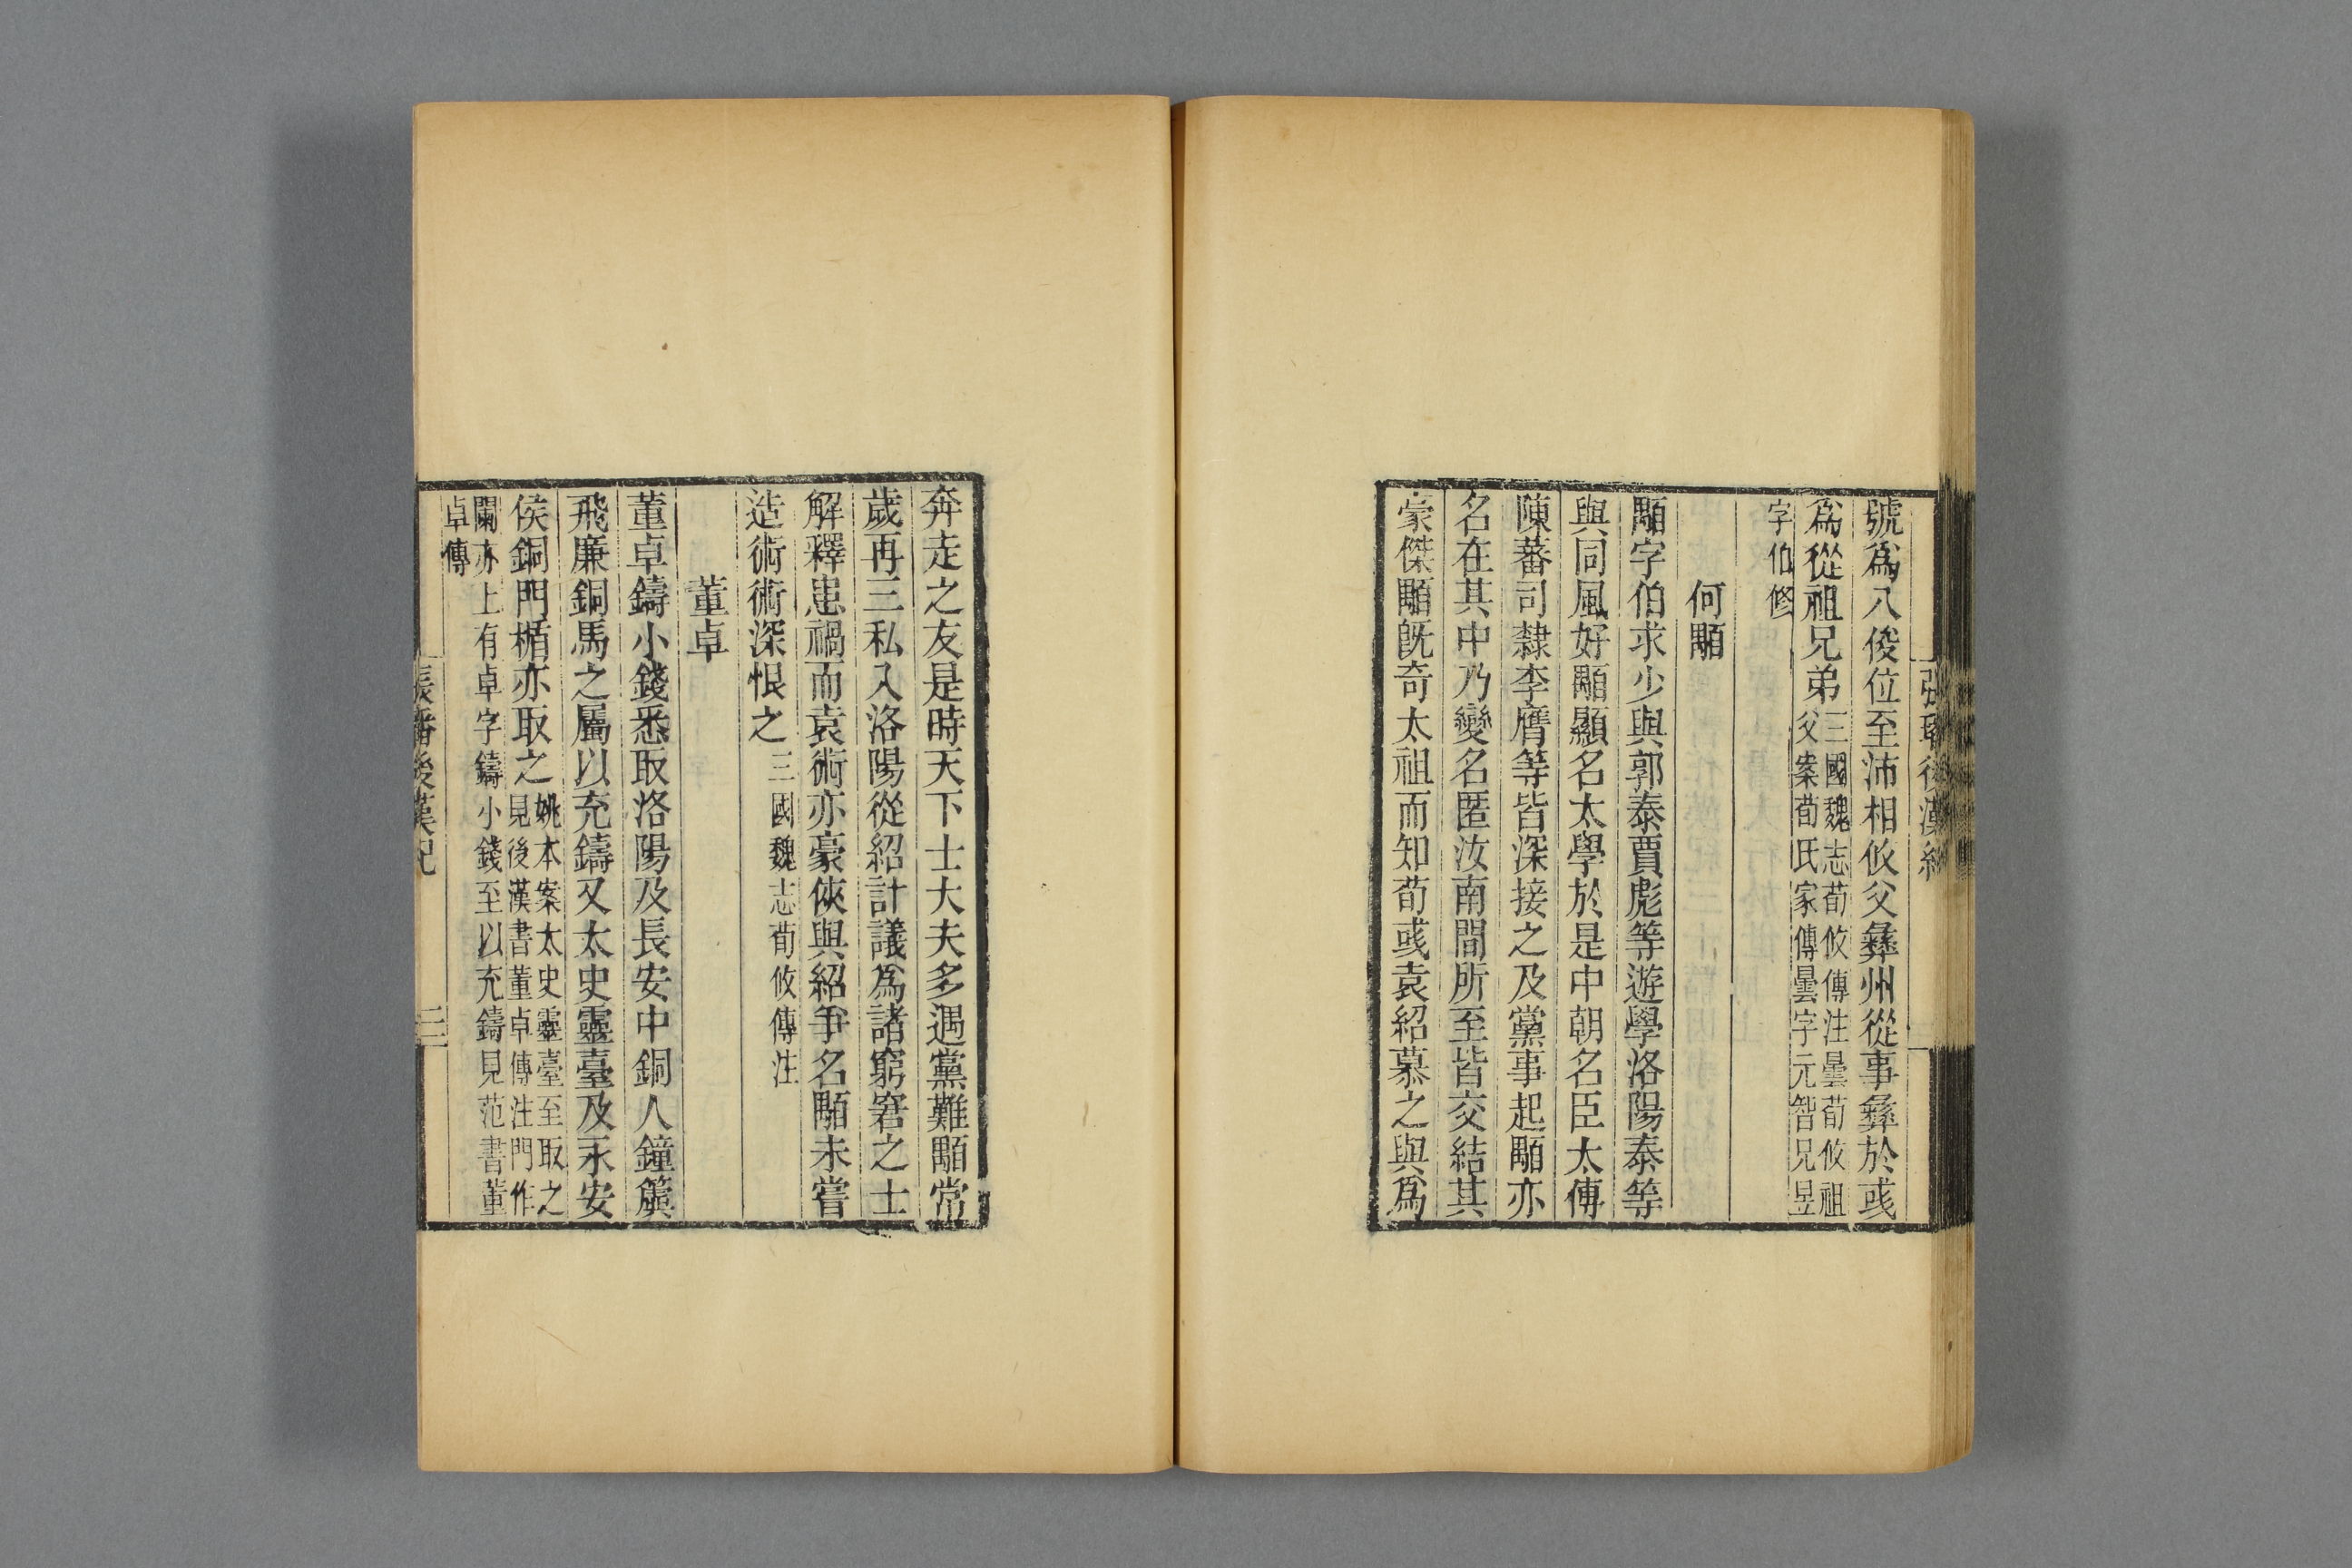 號爲八俊位至沛相攸父彝州從事彝於彧
爲從祖兄弟三國魏志荀攸傳注曇荀攸祖
父案荀氏家傳曇字元智兄昱
字伯修
何顒
顒字伯求少與郭泰賈彪等遊學洛陽泰等
與同風好顒顯名太學於是中朝名臣太傅
陳蕃司隸李膺等皆深接之及黨事起顒亦
名在其中乃變名匿汝南間所至皆交結其
豪傑顒旣奇太祖而知荀彧袁紹慕之與爲
奔走之友是時天下士大夫多遇黨難顒常
歲再三私入洛陽從紹計議爲諸窮窘之士
解釋患禍而袁術亦豪俠與紹爭名顒未嘗
造術術深恨之三國魏志荀攸傳注
董卓
董卓鑄小錢悉取洛陽及長安中銅人鐘簴
飛廉銅馬之屬以充鑄又太史靈臺及永安
侯銅門楯亦取之姚本案太史靈臺至取之
見後漢書董卓傳注門作
闌亦上有卓字鑄小錢至以充鑄見范書董
卓傳
張璠後漢紀
三